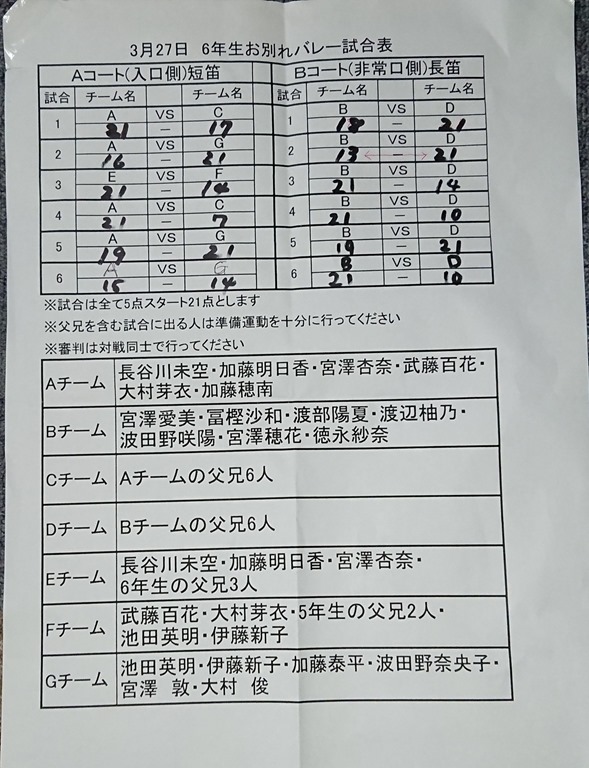 3月27日 6年生お別れバレー試合表
Aコート(入口側)短笛 Bコート(非常口側)長笛
試合 チーム名 チーム名 試合 チーム名 チーム名
1 A VS C 1 B VS D
21 - 17 18 - 21
2 A VS G 2 B VS D
16 - 21 13 - 21
3 E VS F 3 B VS D
21 - 21 - 14
4 A VS C 4 B VS D
21 - 7 21 - 10
5 A VS G 5 B VS D
19 - 21 19 - 21
6 A VS G 6 B VS D
15 - 14 21 - 10
※試合は全て5点スタート21点とします
※父兄を含む試合に出る人は準備運動を十分に行ってください
※審判は対戦同士で行ってください
Aチーム 長谷川未空・加藤明日香・宮澤杏奈・武藤百花・
大村芽衣・加藤穂南
Bチーム 宮澤愛美・冨樫沙和・渡部陽夏・渡辺柚乃・
波田野咲陽・宮澤穂花・徳永紗奈
Cチーム Aチームの父兄6人
Dチーム Bチームの父兄6人
Eチーム 長谷川未空・加藤明日香・宮澤杏奈・
6年生の父兄3人
Fチーム 武藤百花・大村芽衣・5年生の父兄2人・
池田英明・伊藤新子
Gチーム 池田英明・伊藤新子・加藤泰平・波田野奈央子・
宮澤 敦・大村 俊